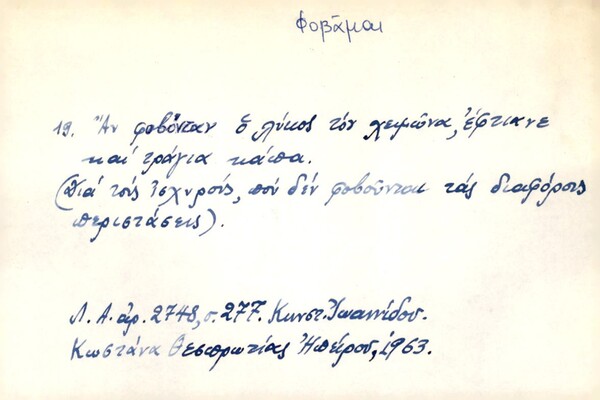 Φοβᾶμαι
19. Ἂν φοβόνταν ὁ λύκος τὸν χειμῶνα, ἔφτιανε
καί τράγια κάπα.
(Διά τούς ἰσχυρούς, πού δέν φοβοῦνται τάς διαφόρους
περιστάσεις).
Λ. Α. ἀρ. 2748, σ. 277. Κωνστ. Ἰωαννίδου.
Κωστάνα Θεσπρωτίας Ἠπείρου, 1963.